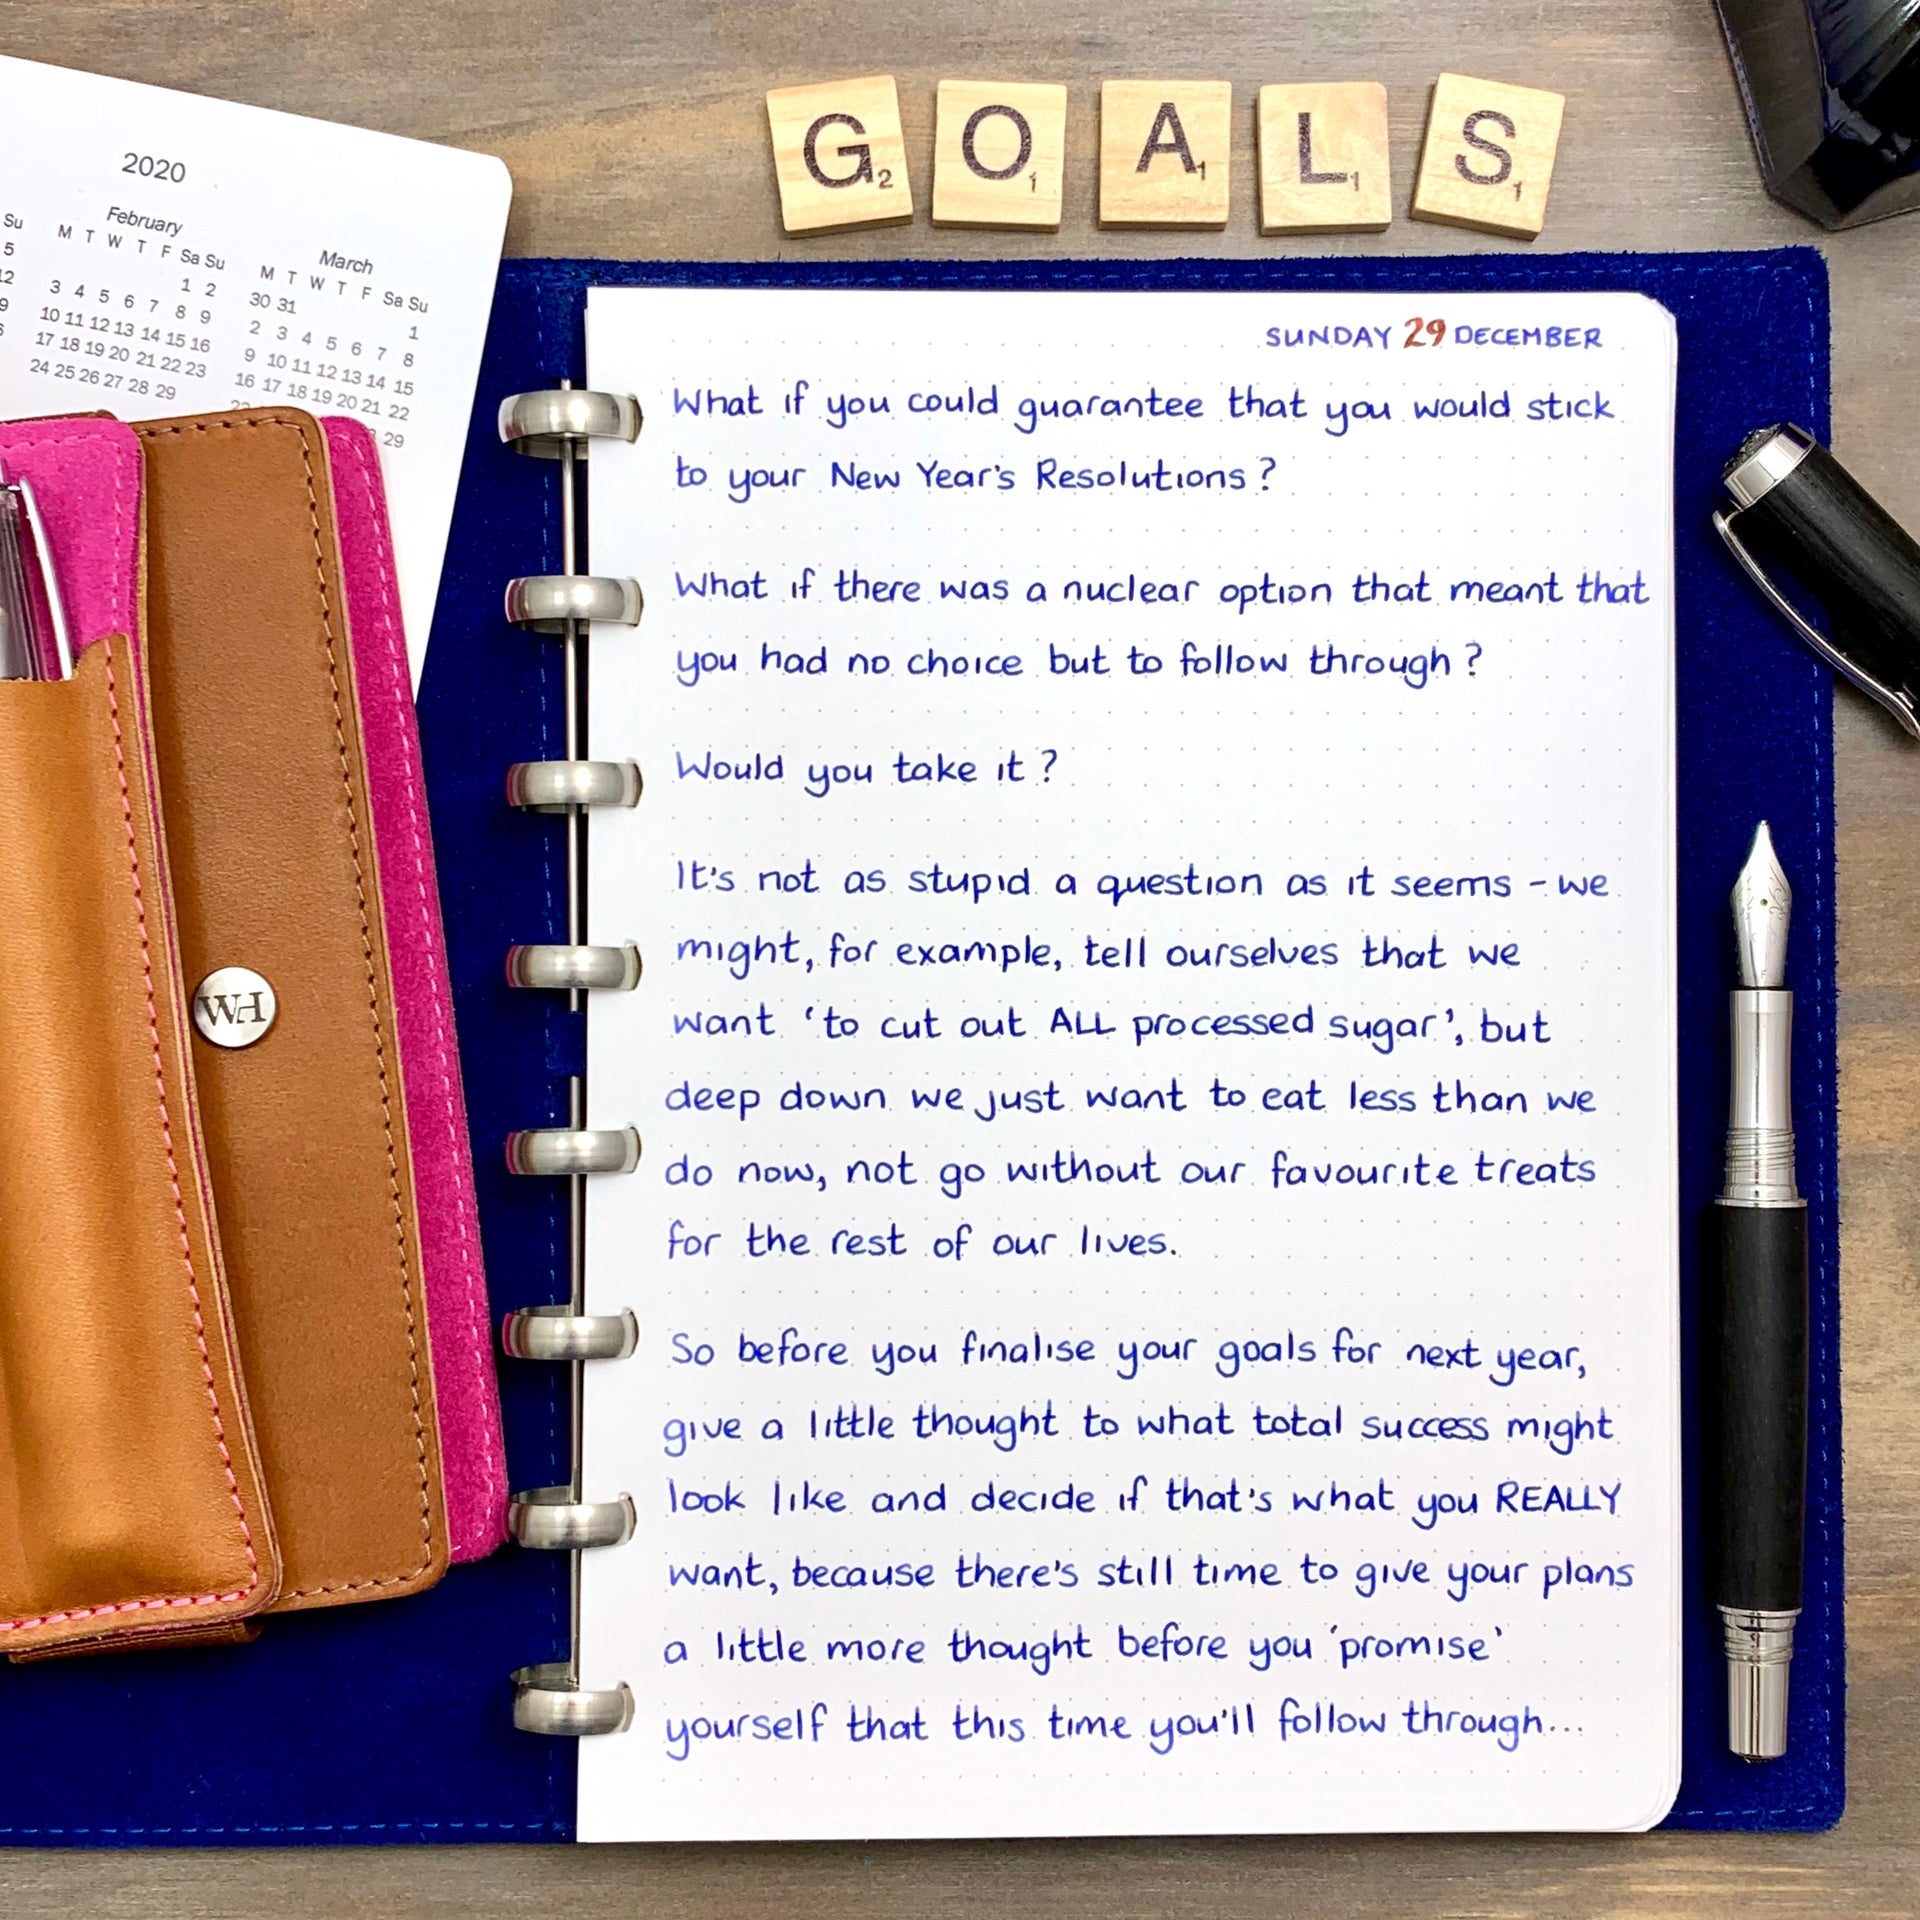 G2 O1 A1 L1 S1
2020
February
M T W T F Sa Su
1 2
3 4 5 6 7 8 9
10 11 12 13 14 15 16
17 18 19 20 21 22 23
24 25 26 27 28 29
March
M T W T F Sa Su
30 31 1
2 3 4 5 6 7 8
9 10 11 12 13 14 15
16 17 18 19 20 21 22
29
Su
5
12
WH
SUNDAY 29 DECEMBER
What if you could guarantee that you would stick
to your New Year's Resolutions?
What if there was a nuclear option that meant that
you had no choice but to follow through?
Would you take it?
It's not as stupid a question as it seems - we
might, for example, tell ourselves that we
want 'to cut out ALL processed sugar', but
deep down we just want to eat less than we
do now, not go without our favourite treats
for the rest of our lives.
So before you finalise your goals for next year,
give a little thought to what total success might
look like and decide if that's what you REALLY
want, because there's still time to give your plans
a little more thought before you 'promise'
yourself that this time you'll follow through...